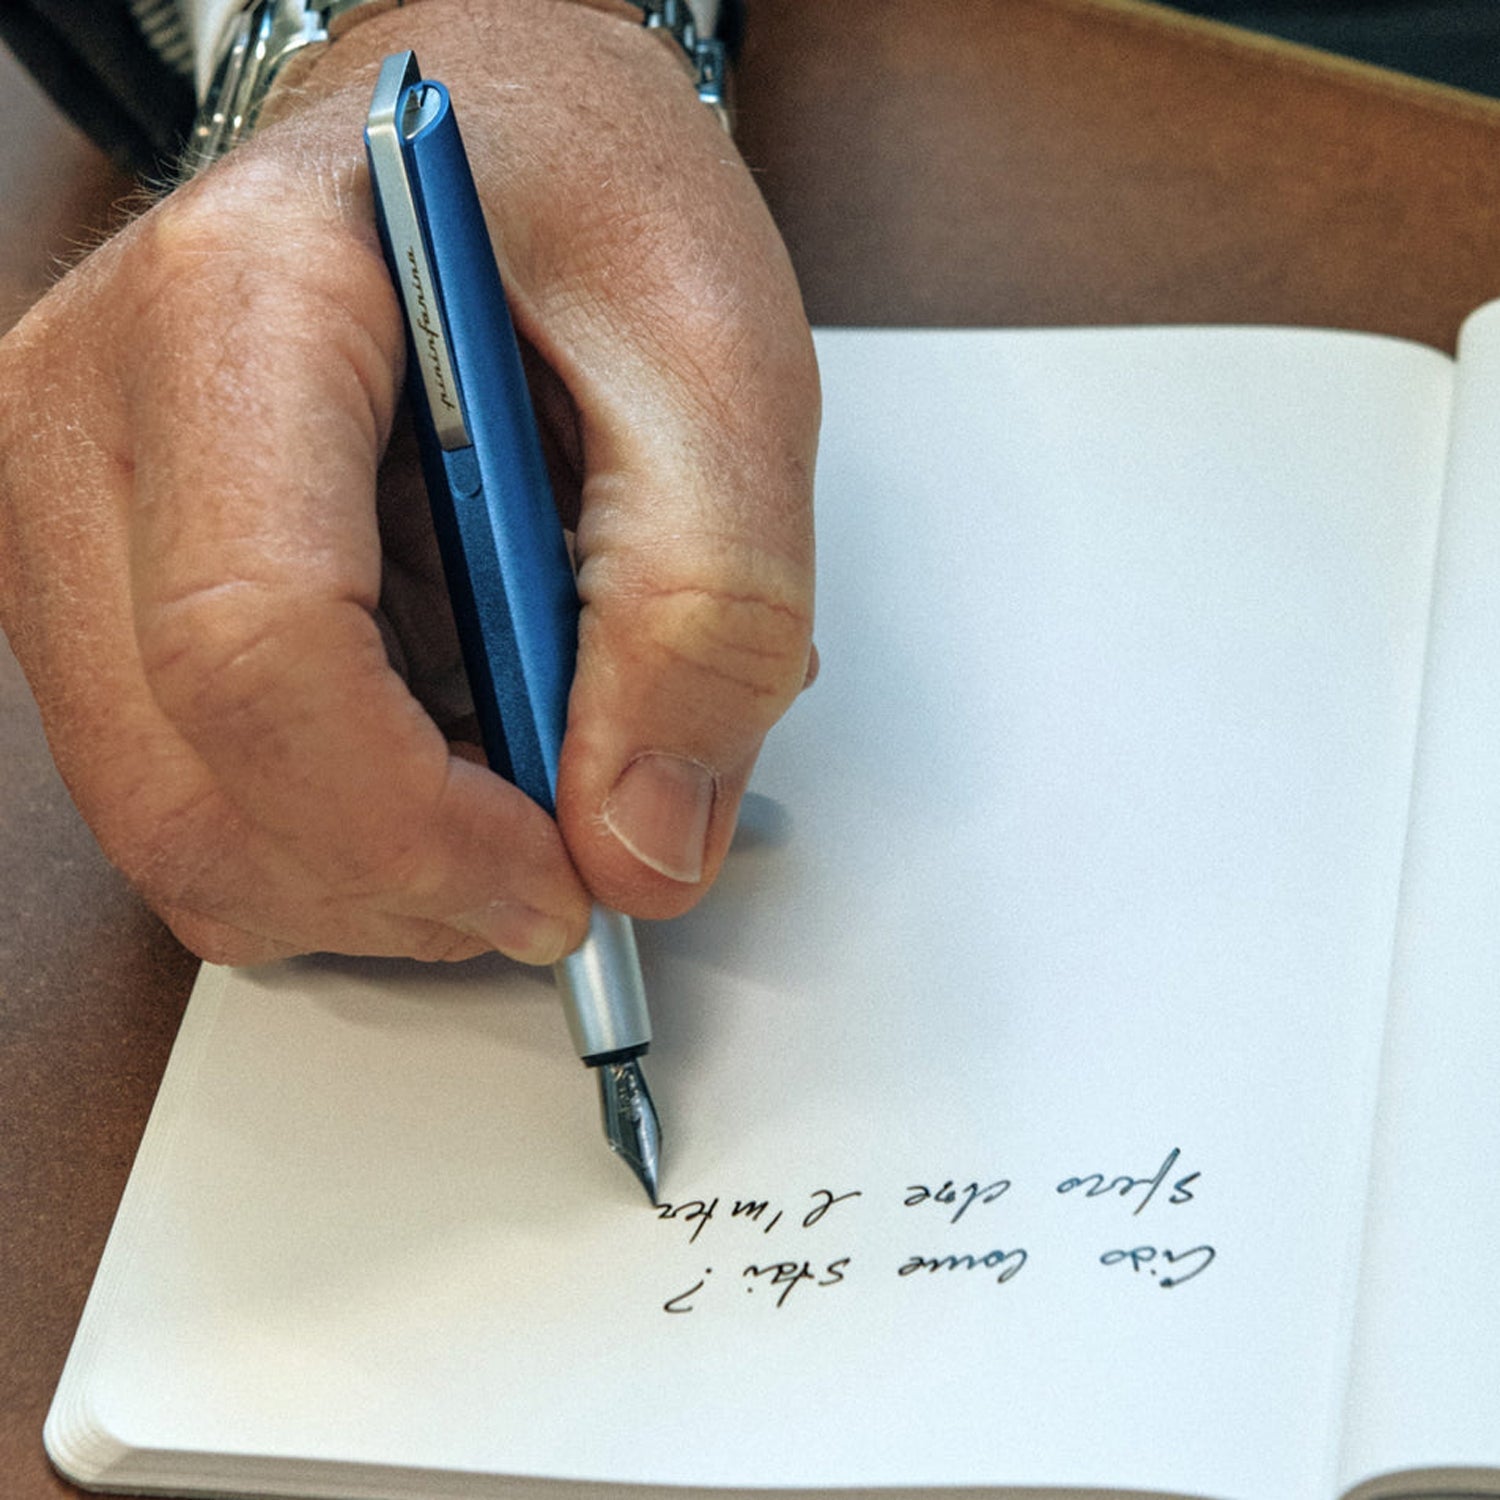 pininfarina
Ciao come stai?
Spero che l'inter